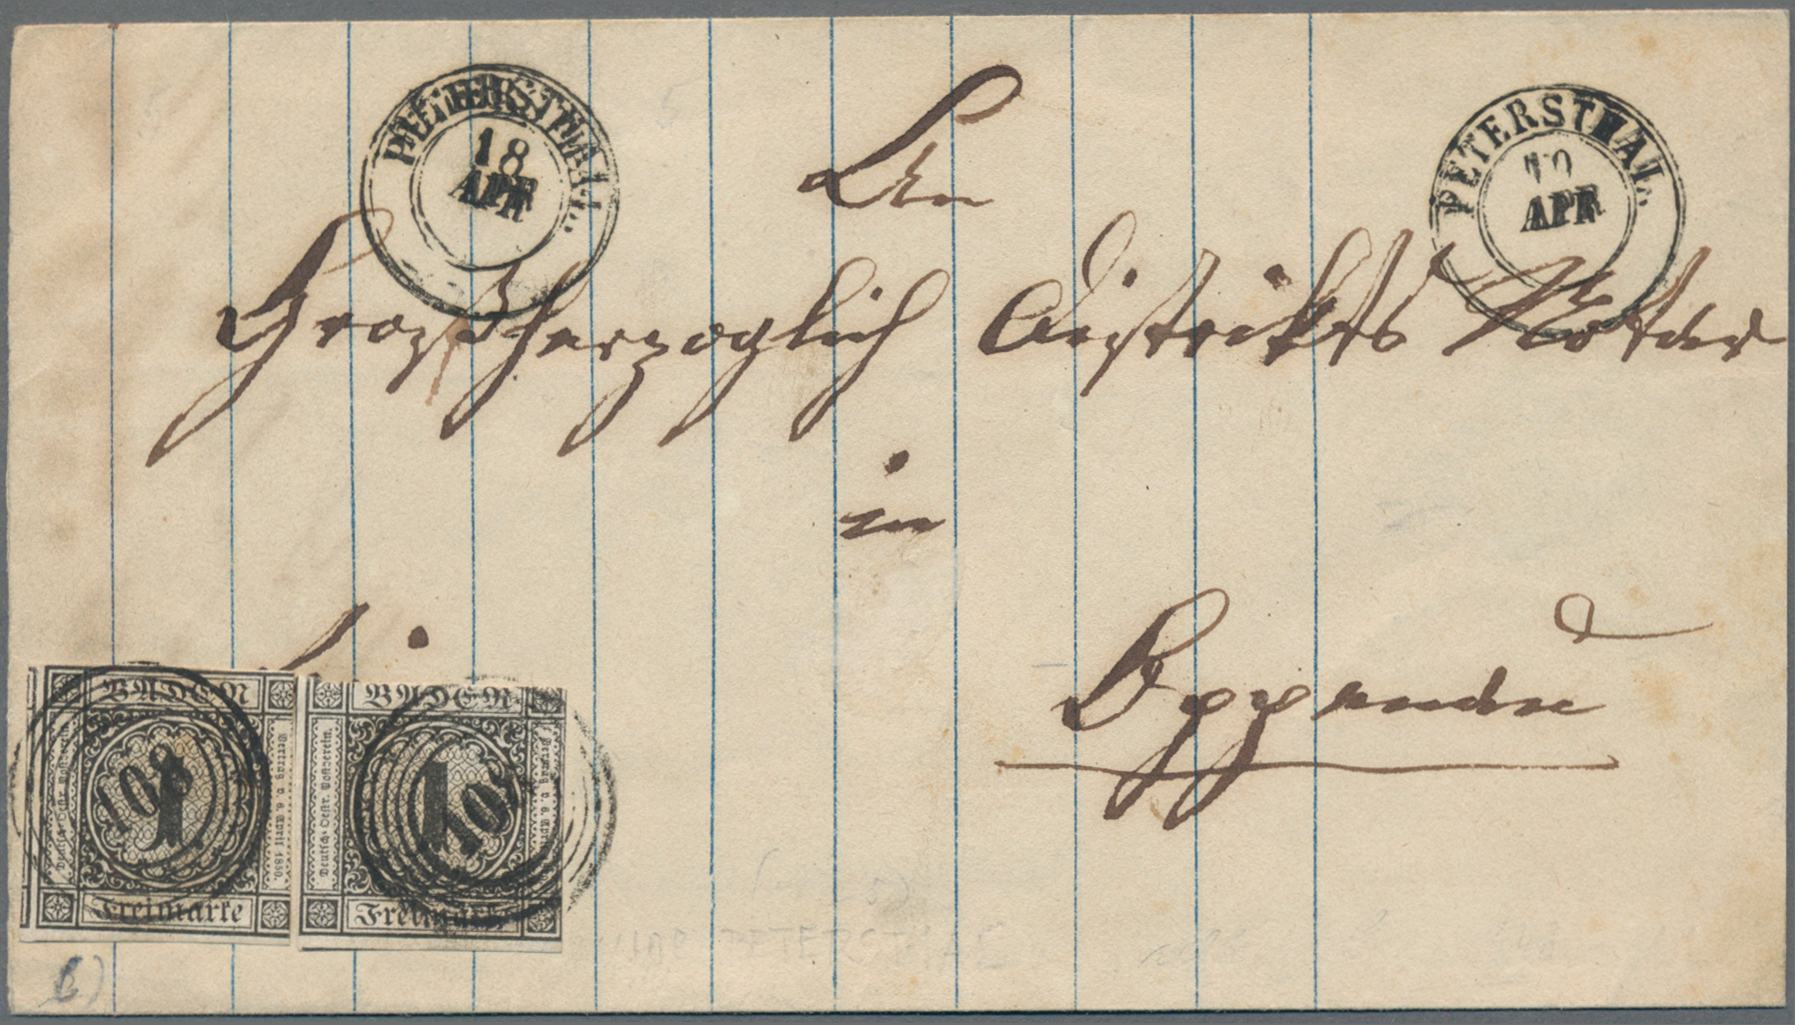 PETERSTHAL.
18
APR
PETERSTHAL.
APR
An
Großherzoglich Distrikts Notar
in
Oppenau
BADEN
Deutsch-Oestr. Postverein.
1
Vertrag v. 6. April 1850.
Freimarke
108
BADEN
Deutsch-Oestr. Postverein.
1
Vertrag v. 6. April
Freimarke
108
b)